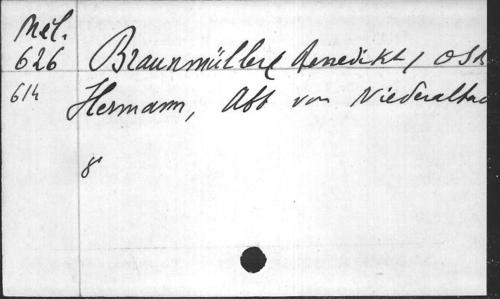 Mél.
626 Braunmüller Benedikt / OSB
614 Hermann, Abt von Niederaltac
8°